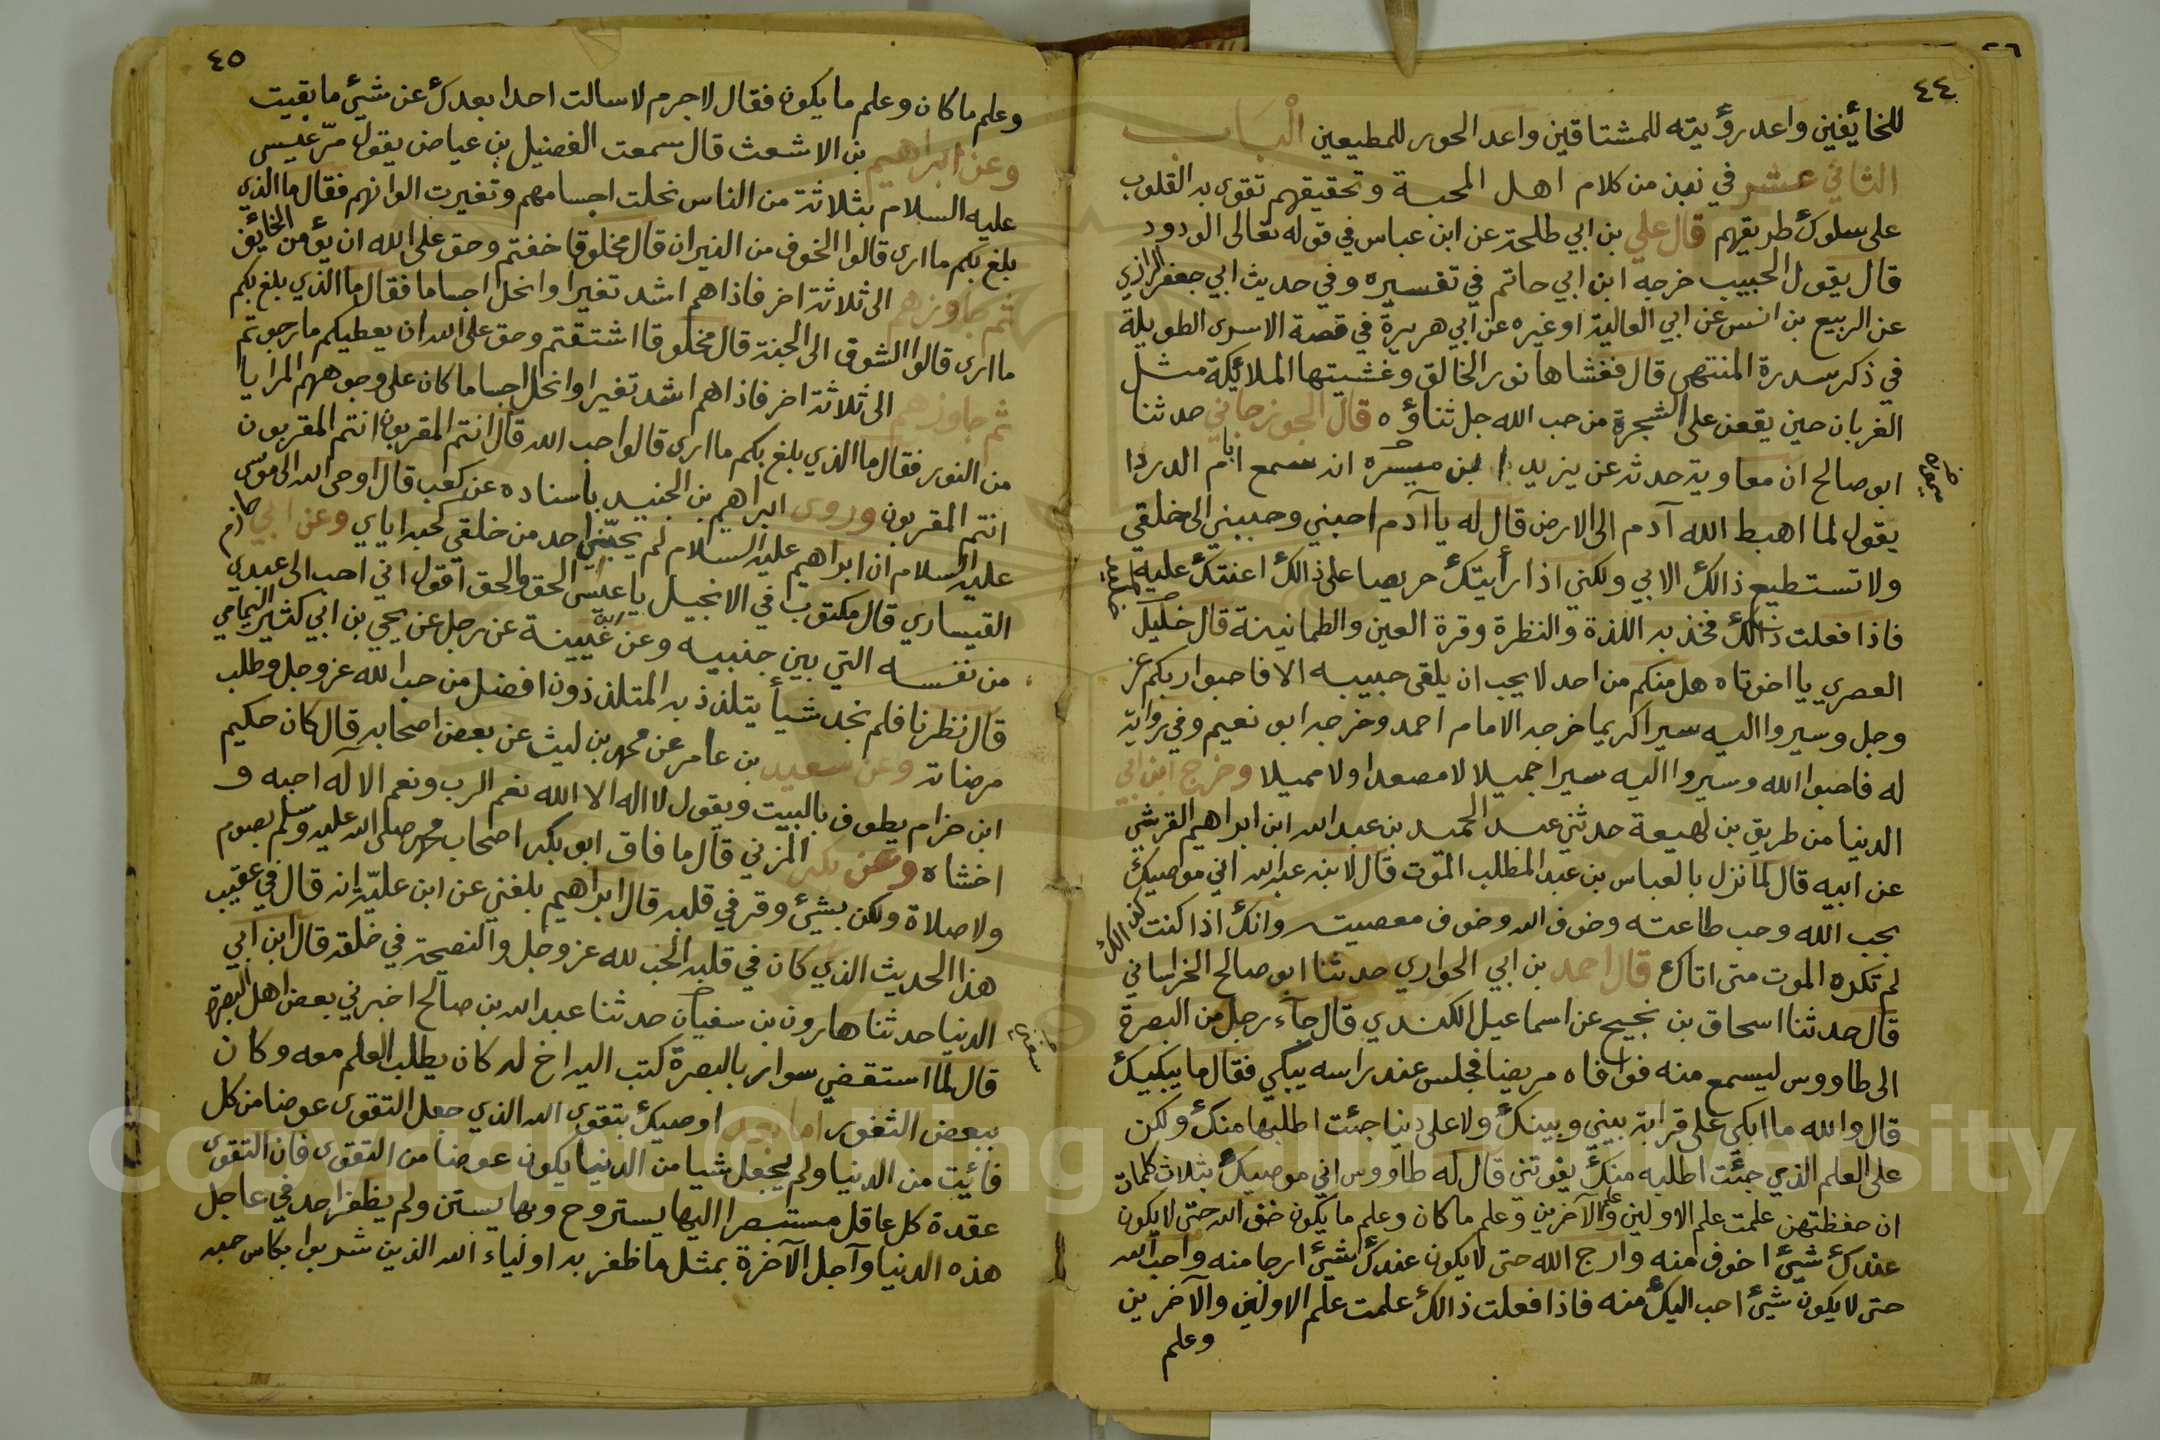 ٤٤
للخائفين واعد رؤيته للمشتاقين واعد الحور للمطيعين الْبَاب
الثاني عشر في نبذ من كلام اهل المحبة وتحقيقهم تقوى به القلوب
على سلوك طريقهم قال علي بن ابي طلحة عن ابن عباس في قوله تعالى الودود
قال يقول الحبيب خرجه ابن ابي حاتم في تفسيره وفي حديث ابي جعفر الرازي
عن الربيع بن انس عن ابي العالية او غيره عن ابي هريرة في قصة الاسرى الطويلة
في ذكر سدرة المنتهى قال فغشاها نور الخالق وغشيتها الملائيكة مثل
الغربان حين يقعن على الشجرة من حب الله جل ثناؤه قال الجوزجاني حدثنا
ابو صالح ان معاوية حدثه عن يزيد ابن ميسره انه سمع ام الدردا
ميسرة
يقول لما اهبط الله آدم الى الارض قال له يا آدم احبني وحببني الى خلقي
ولا تستطيع ذالك الا بي ولكني اذا رأيتك حريصا على ذالك اعنتك عليه
فاذا فعلت ذالك فخذ به اللذة والنظرة وقرة العين والطمانينة قال خليد
العصري يا اخوتاه هل منكم من احد لا يحب ان يلقى حبيبه الا فاحبوا ربكم عز
وجل وسيروا اليه سيرا كريما خرجه الامام احمد وخرجه ابو نعيم وفي رواية
له فاحبوا الله وسيروا اليه سيرا جميلا لا مصعدا ولا مميلا وخرج ابن ابي
الدنيا من طريق بن لهيعة حدثني عبد الحميد بن عبد الله ابن ابراهيم القرشي
عن ابيه قال لما نزل بالعباس بن عبد المطلب الموت قال لابنه عبد الله اني موصيك
بحب الله وحب طاعته وخوف الله وخوف معصيته وانك اذا كنت كذالك
لم تكره الموت متى اتاك قال احمد بن ابي الحواري حدثنا ابو صالح الخراساني
قال حدثنا اسحاق بن نجيح عن اسماعيل الكندي قال جآء رجل من البصرة
الى طاووس ليسمع منه فوافاه مريضا فجلس عند راسه يبكي فقال ما يبكيك
قال والله ما ابكي على قرابة بيني وبينك ولا على دنيا جئت اطلبها منك ولكن
على العلم الذي جئت اطلبه منك يفوتني قال له طاووس اني موصيك بثلاث كلمات
ان حفظتهن علمت علم الاولين والآخرين وعلم ما كان وعلم ما يكون خف الله حتى لا يكون
عندك شيئ اخوف منه وارج الله حتى لا يكون عندك شيئ ارجا منه واحب الله
حتى لا يكون شيئ احب اليك منه فاذا فعلت ذالك علمت علم الاولين والآخرين
وعلم
٤٥
وعلم ما كان وعلم ما يكون فقال لا جرم لا سالت احدا بعدك عن شيئ ما بقيت
وعن ابراهيم بن الاشعث قال سمعت الفضيل بن عياض يقول مرّ عيسى
عليه السلام بثلاثة من الناس نحلت اجسامهم وتغيرت الوانهم فقال ما الذي
بلغ بكم ما ارى قالوا الخوف من النيران قال مخلوقا خفتم وحق على الله ان يؤمن الخائف
ثم جاوزهم الى ثلاثة اخر فاذا هم اشد تغيرا وانحل اجساما فقال ما الذي بلغ بكم
ما ارى قالوا الشوق الى الجنة قال مخلوقا اشتقتم وحق على الله ان يعطيكم ما رجوتم
ثم جاوزهم الى ثلاثة اخر فاذا هم اشد تغيرا وانحل اجساما كان على وجوههم المرايا
من النور فقال ما الذي بلغ بكم ما ارى قالوا حب الله قال انتم المقربون انتم المقربون
انتم المقربون وروى ابراهيم بن الجنيد باسناده عن كعب قال اوحى الله الى موسى
عليه السلام ان ابراهيم عليه السلام لم يحبّني احد من خلقي كحبه اياي وعن ابي حازم
القيساري قال مكتوب في الانجيل يا عيسى الحق والحق اقول اني احب الى عبدي
من نفسه التي بين جنبيه وعن ابن عُيينة عن رجل عن يحيي بن ابي كثير اليمامي
قال نظرنا فلم نجد شيأ يتلذذ به المتلذذون افضل من حب الله عز وجل وطلب
مرضاته وعن سعيد بن عامر عن محمد بن ليث عن بعض اصحابه قال كان حكيم
ابن حزام يطوف بالبيت ويقول لا اله الا الله نعم الرب ونعم الاله احبه و
اخشاه وعن بكر المزني قال ما فاق ابو بكر اصحاب محمد صلى الله عليه وسلم بصوم
ولا صلاة ولكن بشيئ وقر في قلبه قال ابراهيم بلغني عن ابن عليّة انه قال في عقيب
هذا الحديث الذي كان في قلبه الحب لله عز وجل والنصحة في خلقه قال ابن ابي
الدنيا حدثنا هارون بن سفيان حدثنا عبد الله بن صالح اخبرني بعض اهل البصرة
قال لما استقضي سوار بالبصرة كتب اليه اخ له كان يطلب العلم معه وكان
ببعض الثغور اما بعد اوصيك بتقوى الله الذي جعل التقوى عوضا من كل
فائيت من الدنيا ولم يجعل شيا من الدنيا يكون عوضا من التقوى فان التقوى
عقدة كل عاقل مستبصر اليها يستروح وبها يستن ولم يظفر احد في عاجل
هذه الدنيا وآجل الآخرة بمثل ما ظفر به اولياء الله الذين شربوا بكاس حبه
Copyright © King Saud University